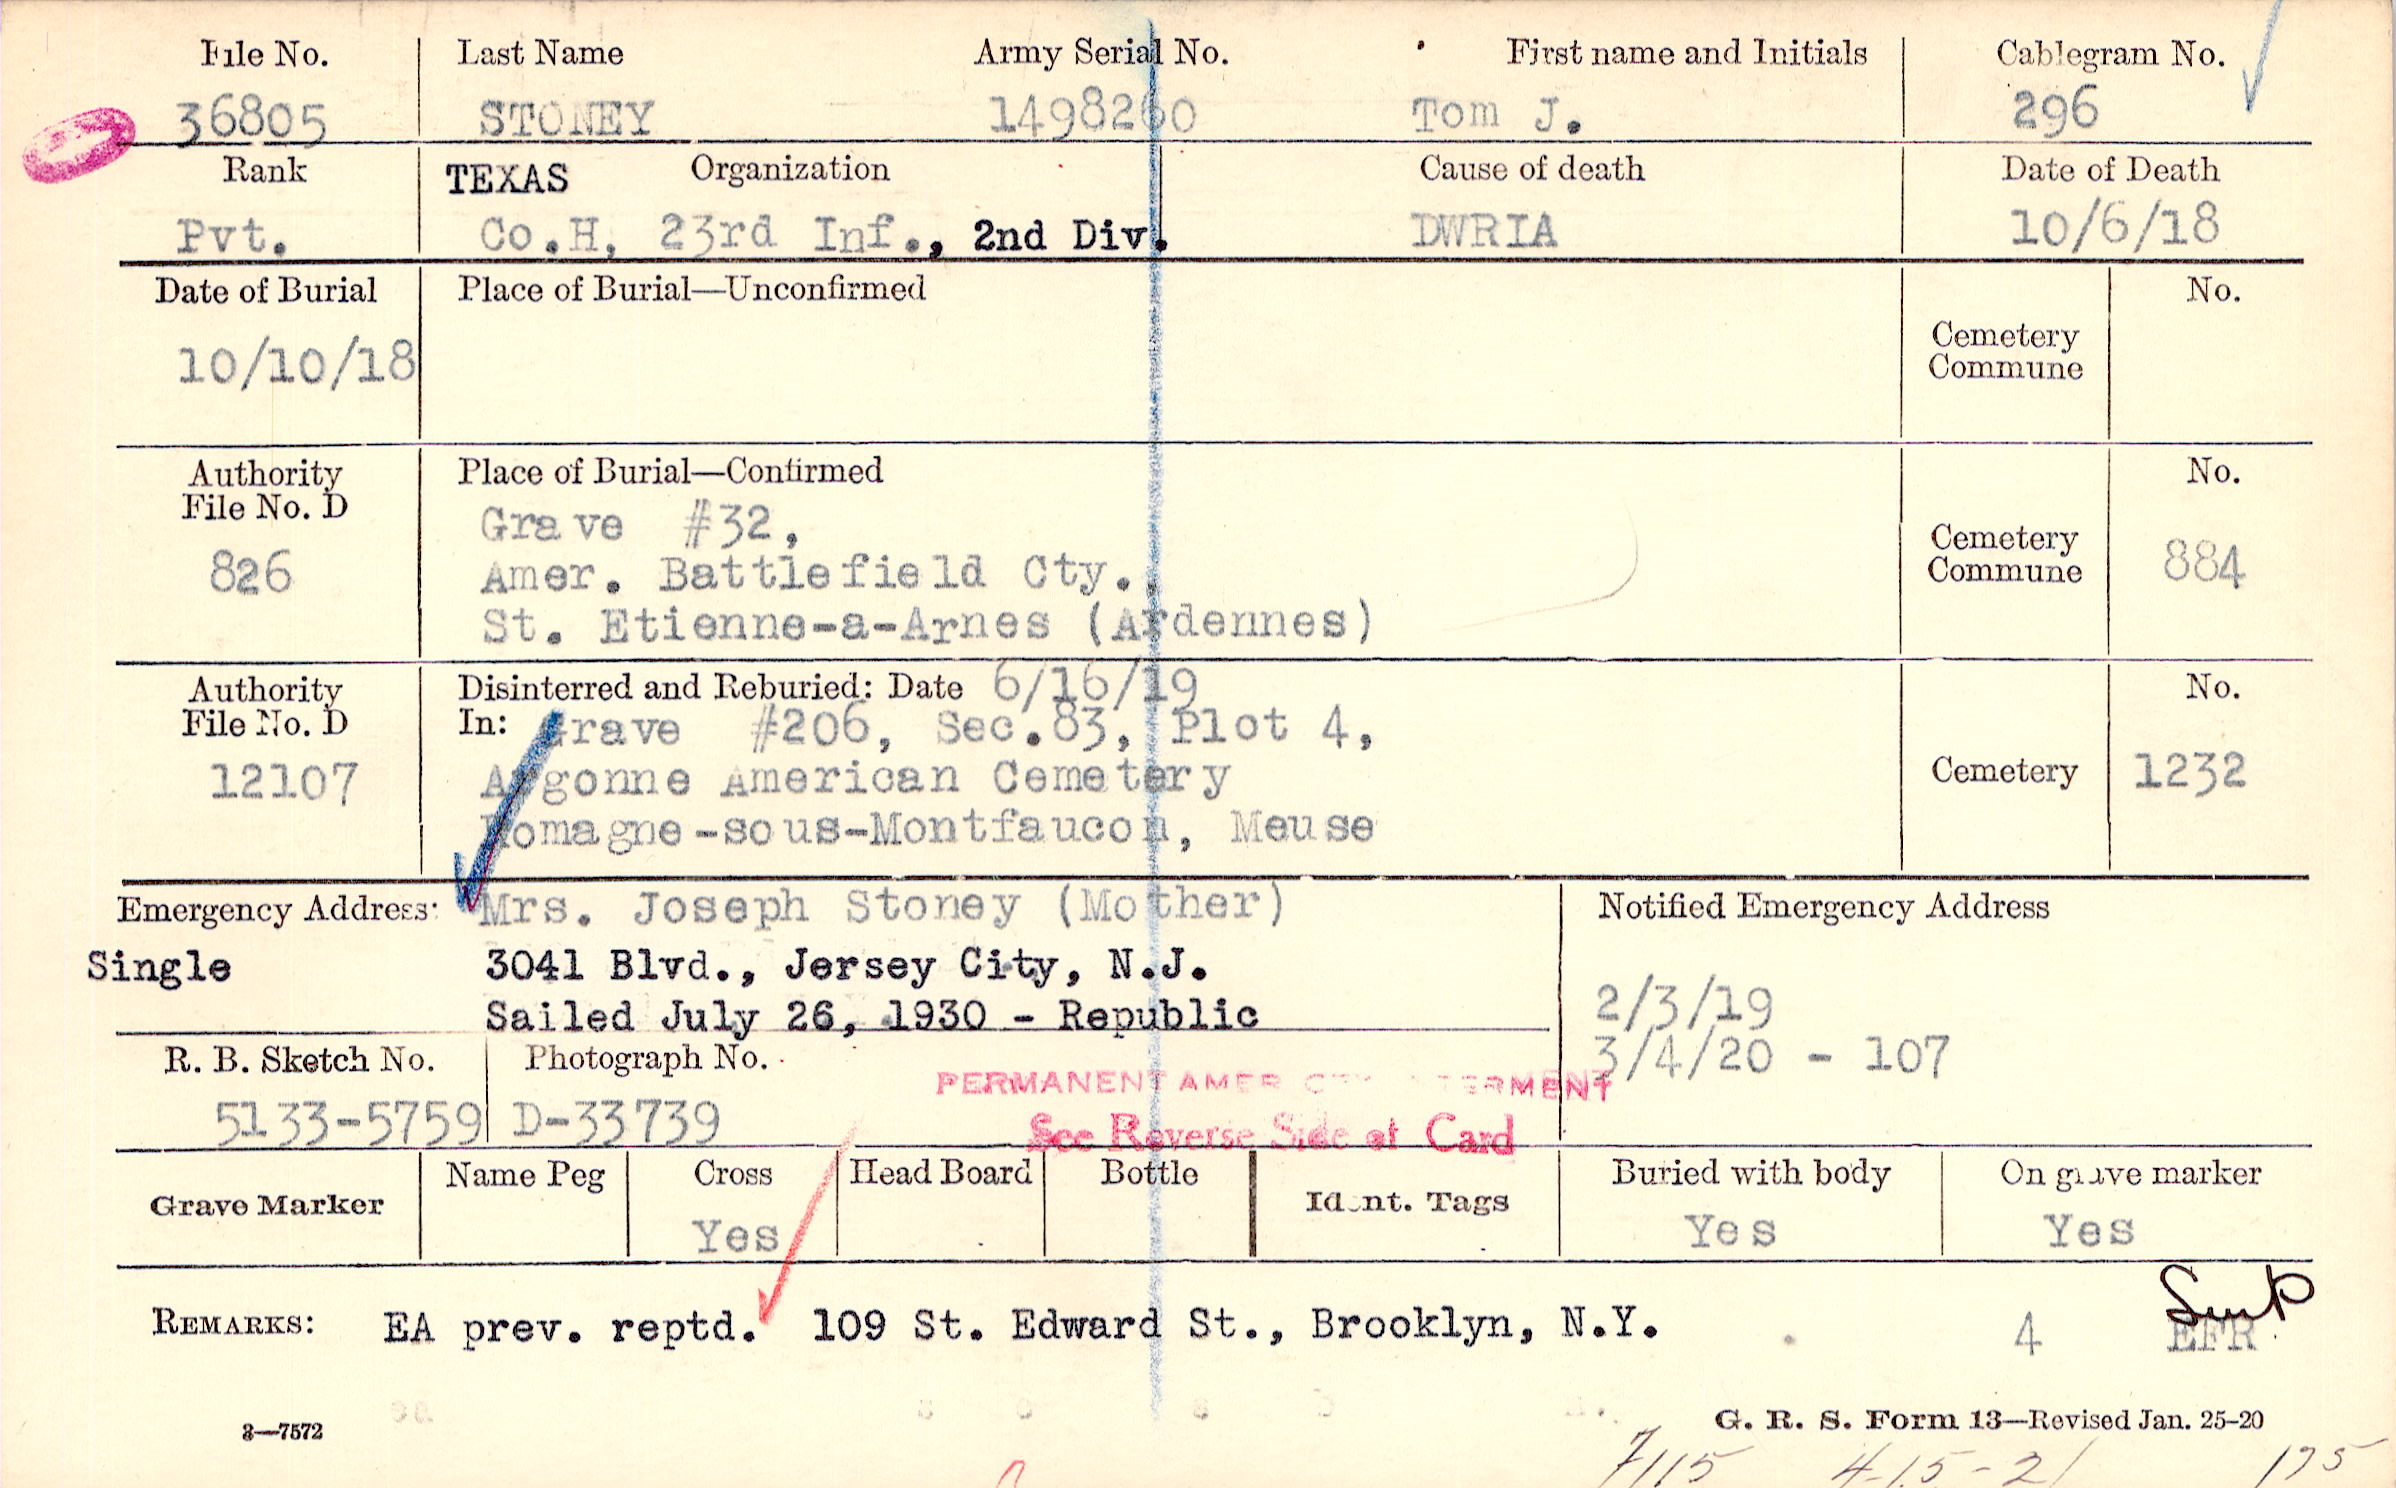 File No. Last Name Army Serial No. First name and Initials Cablegram No.
36805 STONEY 1498260 Tom J. 296
Rank TEXAS Organization Cause of death Date of Death
Pvt. Co.H, 23rd Inf., 2nd Div. DWRIA 10/6/18
Date of Burial Place of Burial—Unconfirmed No.
10/10/18 Cemetery
Commune
Authority Place of Burial—Confirmed No.
File No. D Grave #32,
826 Amer. Battlefield Cty., Cemetery
Commune 884
St. Etienne-a-Arnes (Ardennes)
Authority Disinterred and Reburied: Date 6/16/19 No.
File No. D In: Grave #206, Sec.83, Plot 4,
12107 Argonne American Cemetery Cemetery 1232
Romagne-sous-Montfaucon, Meuse
Emergency Address: Mrs. Joseph Stoney (Mother) Notified Emergency Address
Single 3041 Blvd., Jersey City, N.J.
Sailed July 26, 1930 - Republic 2/3/19
3/4/20 - 107
R. B. Sketch No. Photograph No.
PERMANENT AMER
5133-5759 D-33739 See Reverse Side of Card
Grave Marker Name Peg Cross Head Board Bottle Ident. Tags Buried with body On grave marker
Yes Yes Yes
REMARKS: EA prev. reptd. 109 St. Edward St., Brooklyn, N.Y. 4 EFR
3—7572 G. R. S. Form 13—Revised Jan. 25-20
7115 4-15-21 175